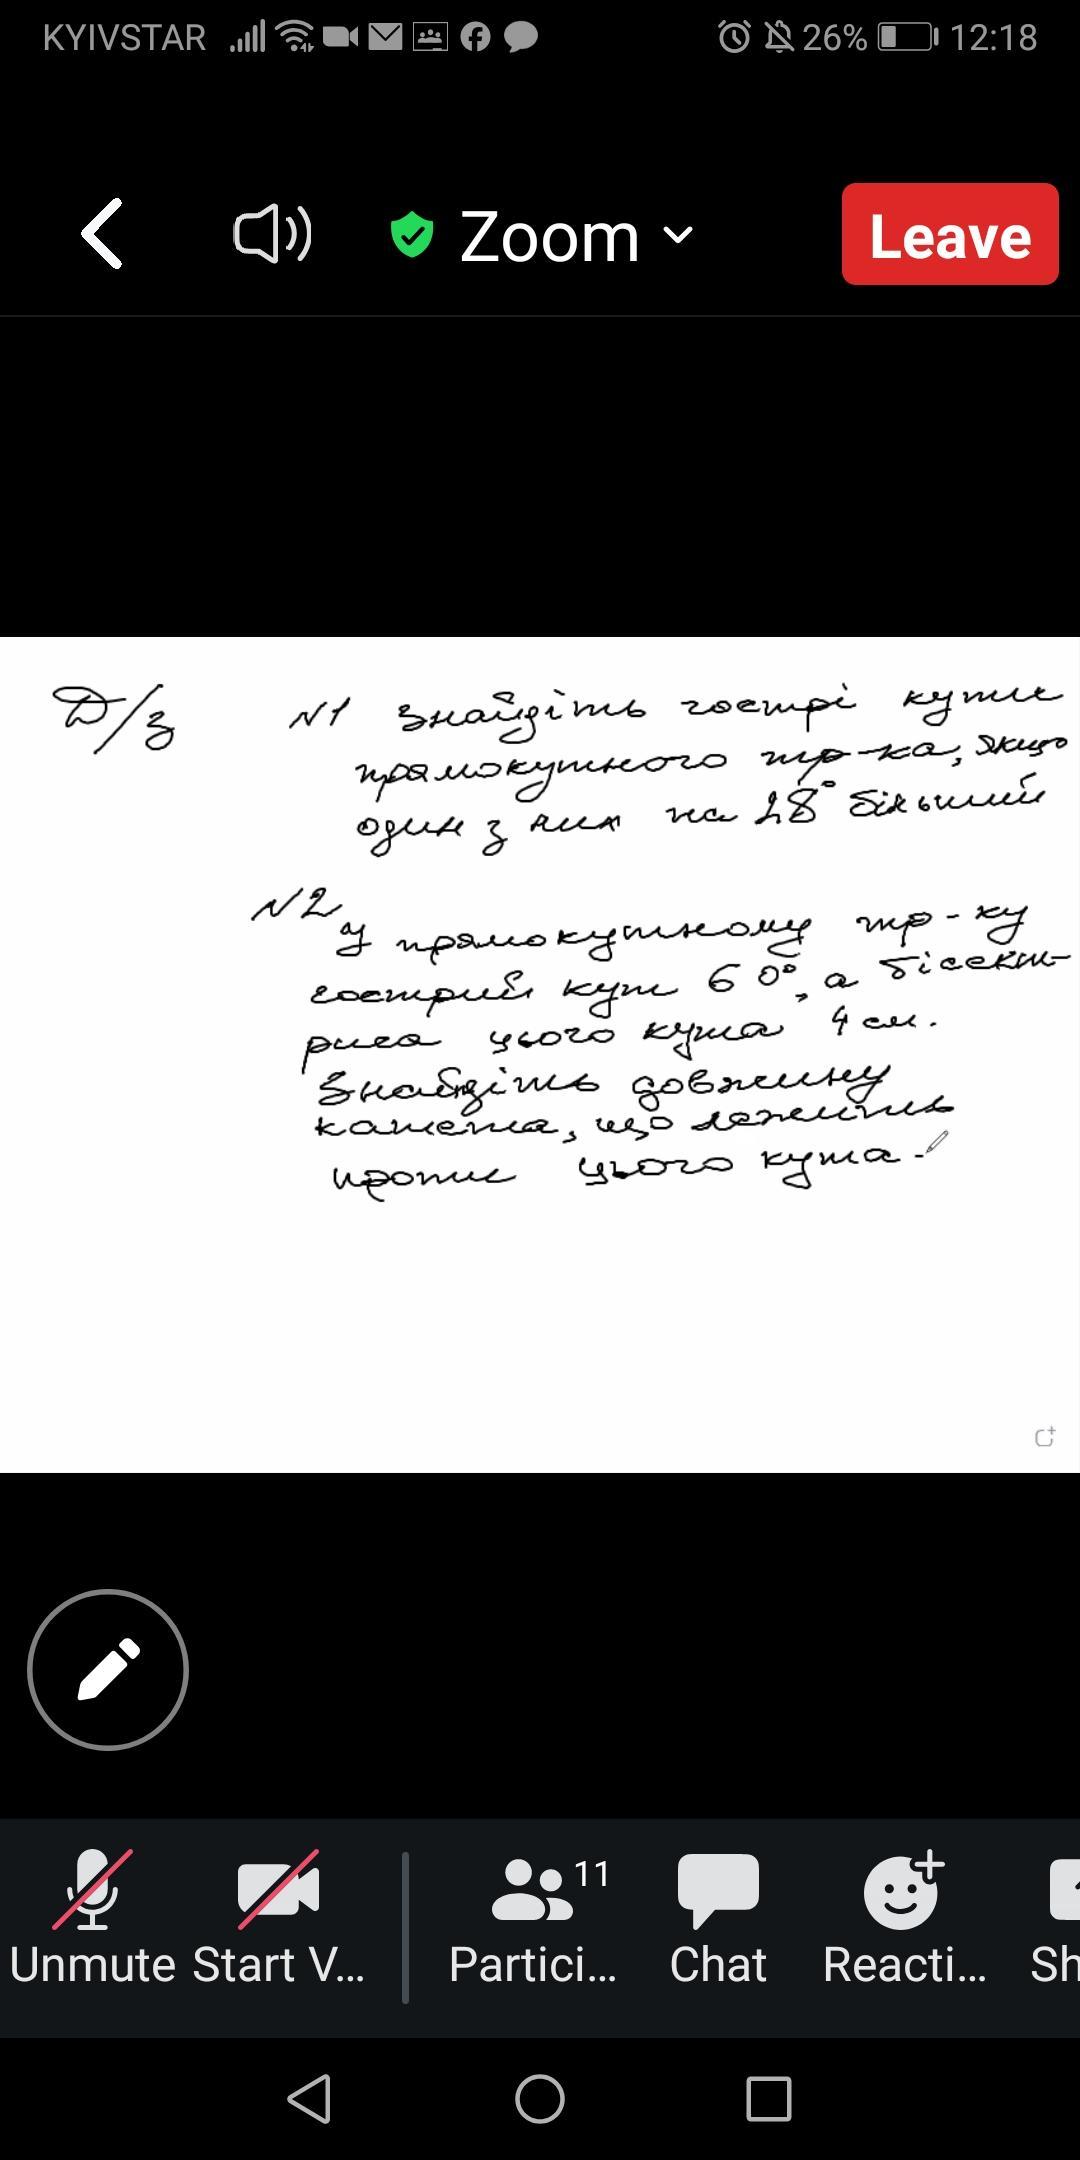 KYIVSTAR 26% 12:18
Zoom Leave
Д/з N1 Знайдіть гострі кути
прямокутного тр-ка, якщо
один з них на 18° більший
N2 У прямокутному тр-ку
гострий кут 60°, а бісект-
риса цього кута 4 см.
Знайдіть довжину
катета, що лежить
проти цього кута.
11
Unmute Start V... Partici... Chat Reacti... Sh